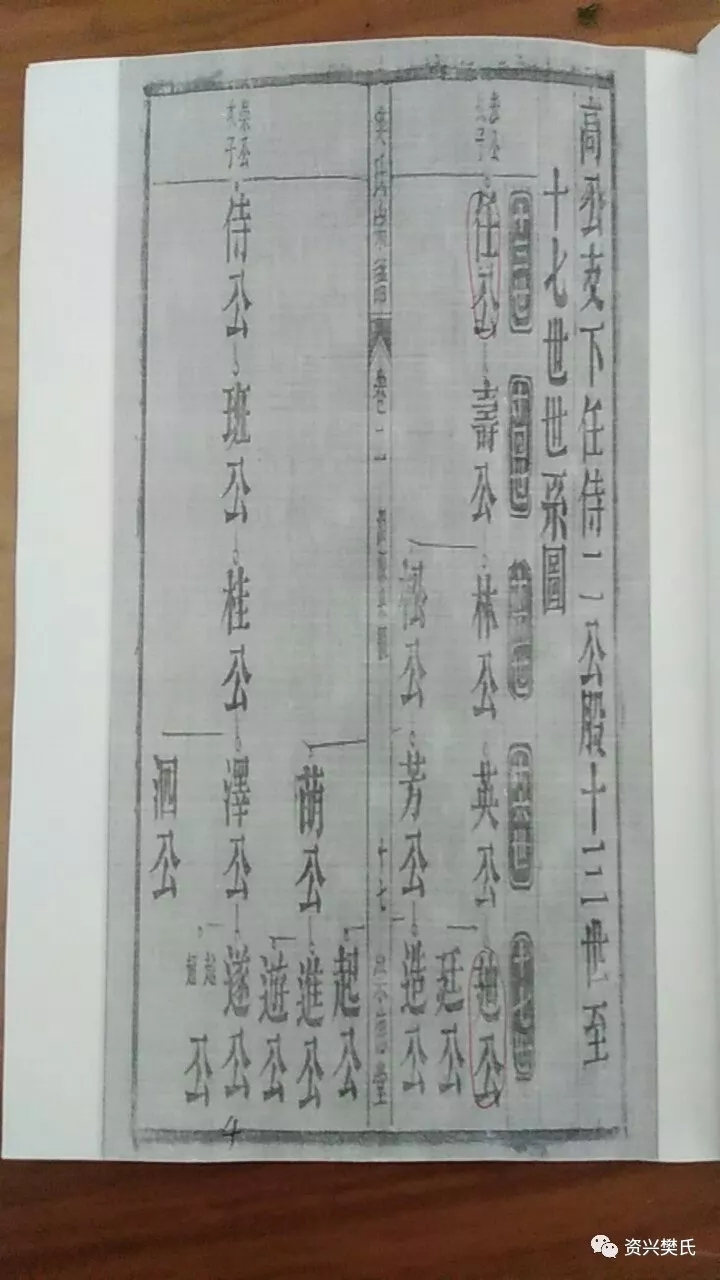 高公支下任侍二公股十三世至
十七世世系圖
十三世
十四世
十五世
十六世
十七世
任公
壽公
林公
英公
迪公
松公
芳公
廷公
造公
卷二
十七
堂
侍公
班公
桂公
萌公
起公
進公
遊公
澤公
遂公
泗公
公
4
资兴樊氏